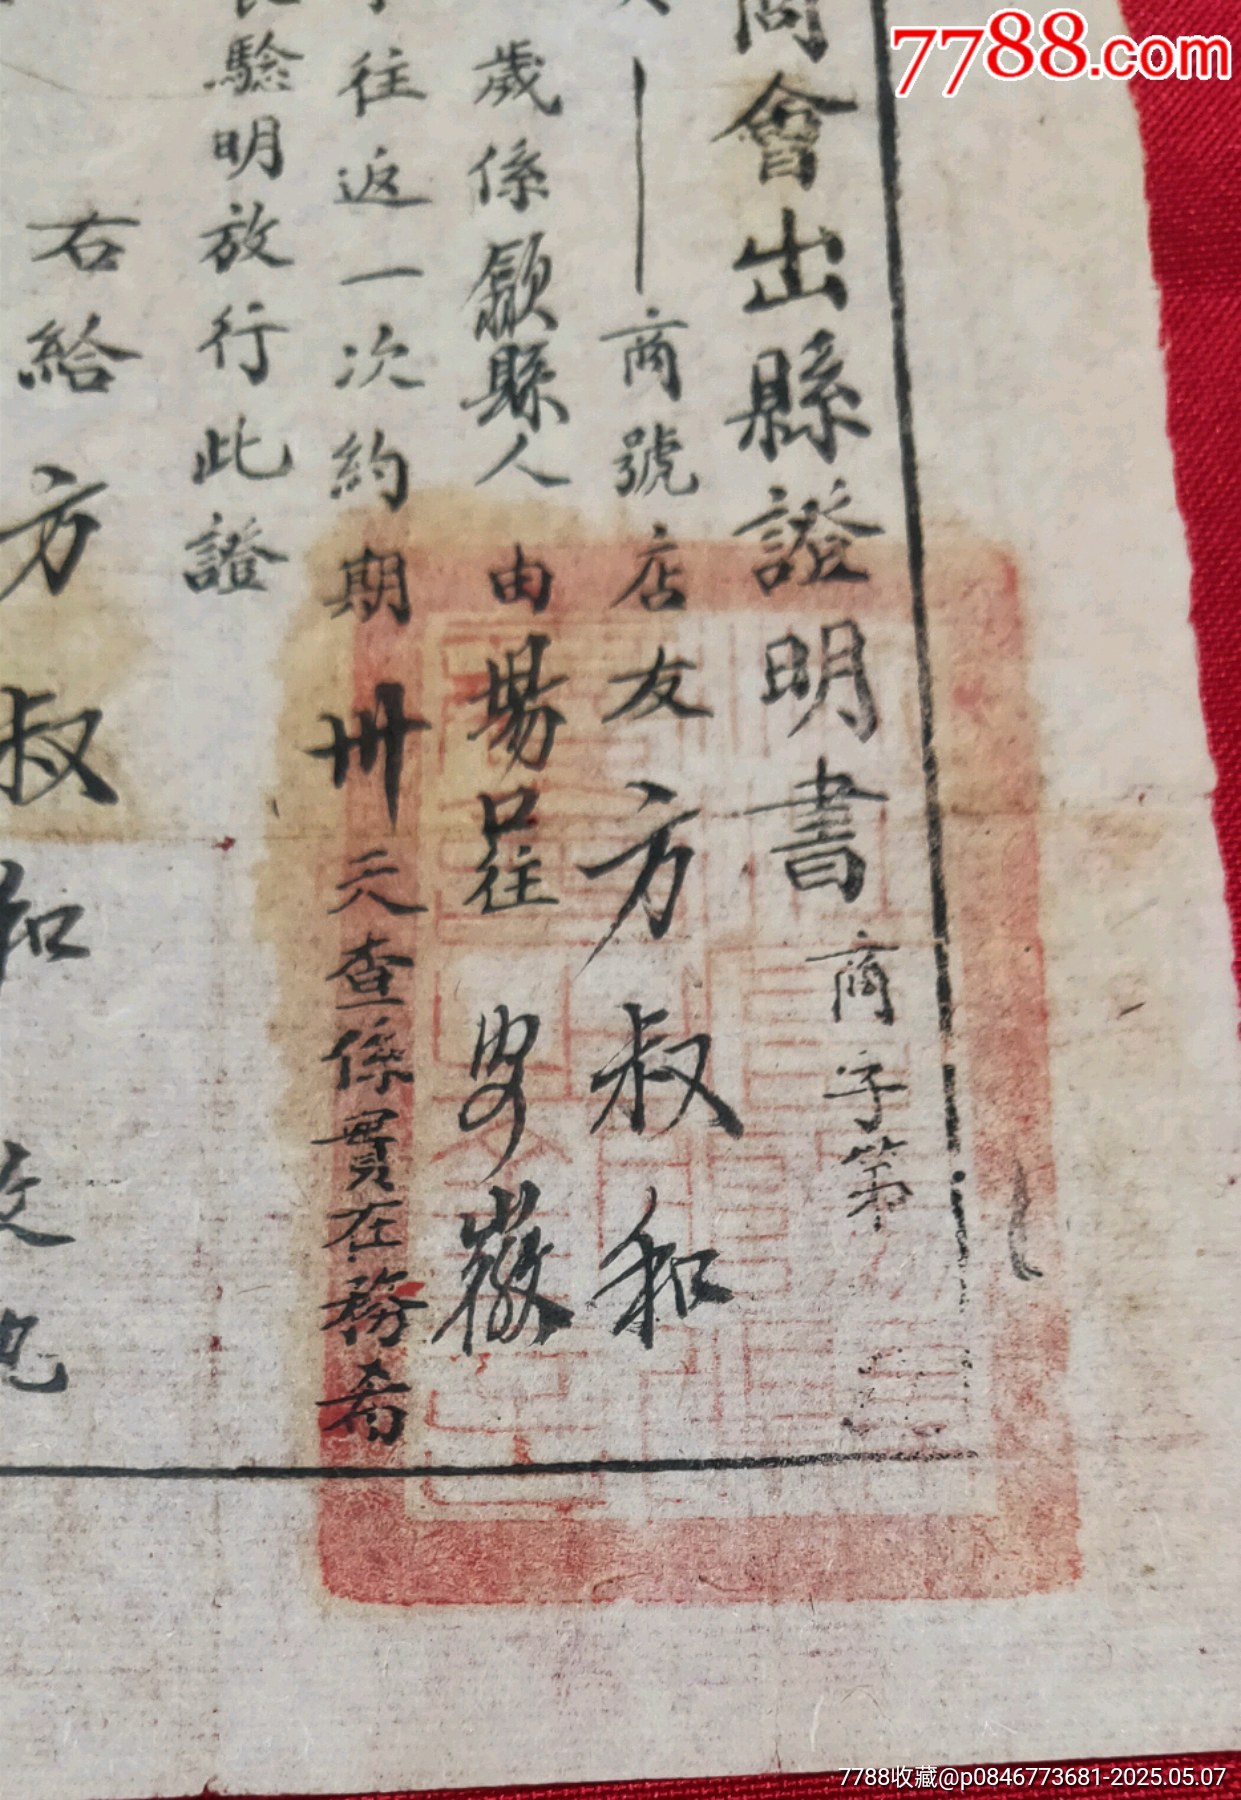 7788.com
商會出縣證明書 商字第
商號店友方叔和
歲係歙縣人 由場口往
徽
往返一次約期卅天查係實在務希
驗明放行此證
右給方叔和
7788收藏@p0846773681-2025.05.07